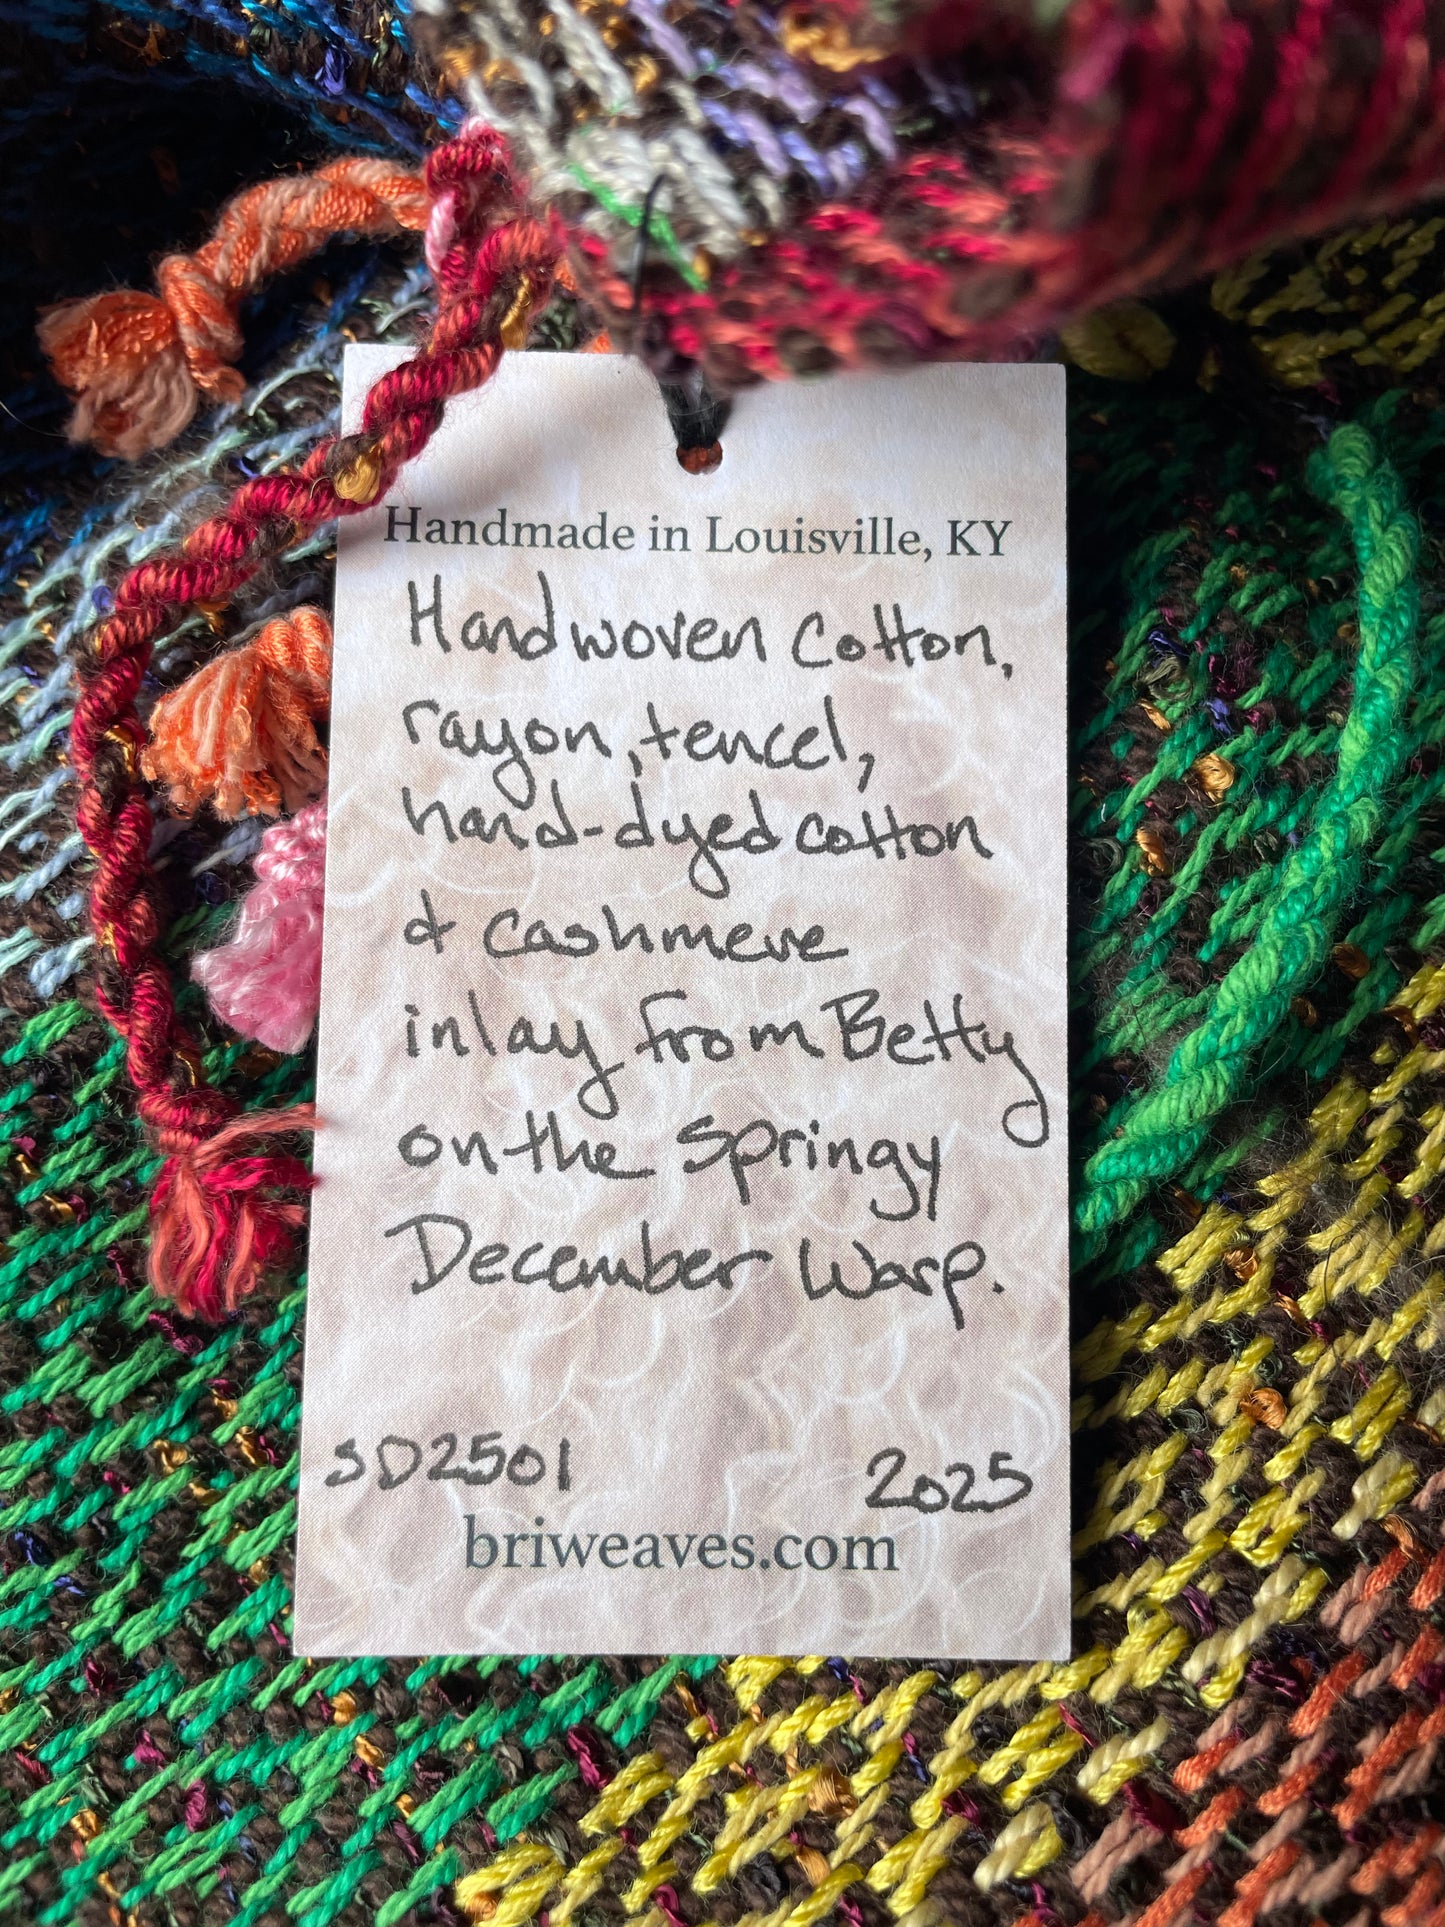 Handmade in Louisville, KY
Handwoven cotton,
rayon, tencel,
hand-dyed cotton
& cashmere
inlay from Betty
on the springy
December Warp.
SD2501
2025
briweaves.com